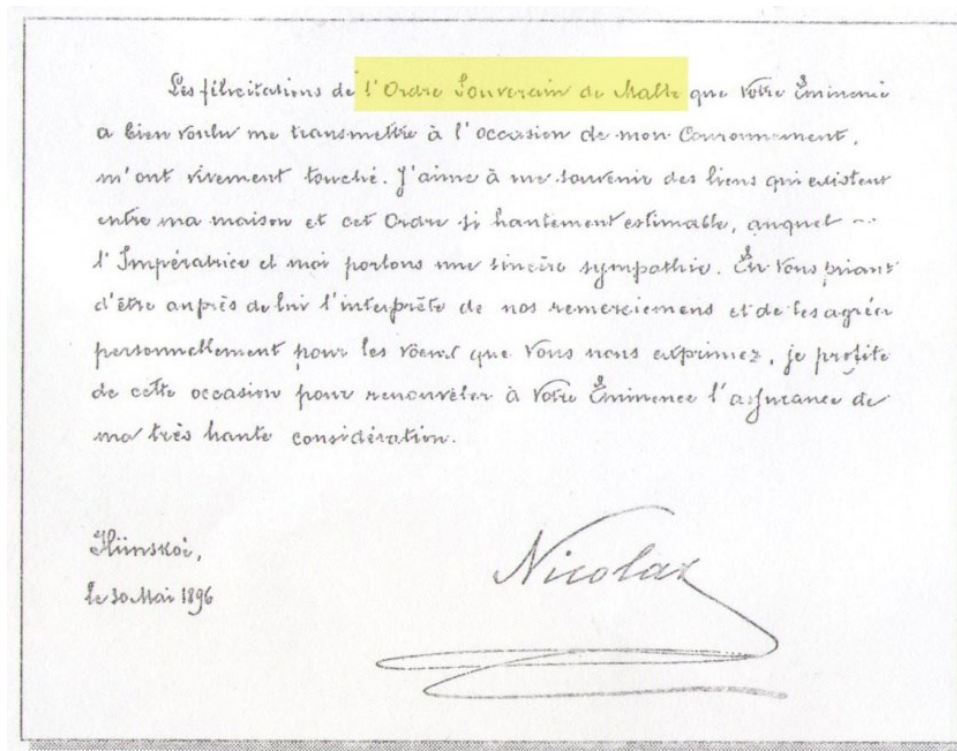 Les félicitations de l'Ordre Souverain de Malte que Votre Éminence
a bien voulu me transmettre à l'occasion de mon Couronnement,
m'ont vivement touché. J'aime à me souvenir des liens qui existent
entre ma maison et cet Ordre si hautement estimable, auquel
l'Impératrice et moi portons une sincère sympathie. En Vous priant
d'être auprès de lui l'interprète de nos remerciemens et de les agréer
personnellement pour les voeux que Vous nous exprimez, je profite
de cette occasion pour renouveler à Votre Éminence l'assurance de
ma très haute considération.
Iliinskoé,
le 30 Mai 1896
Nicolas